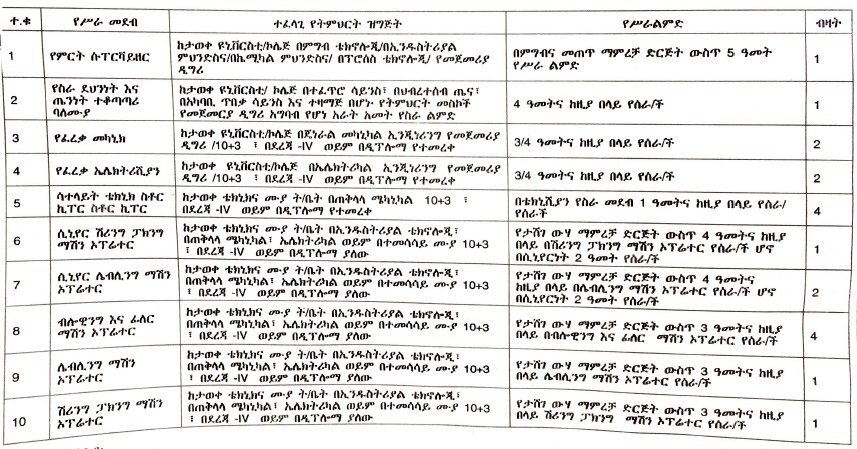 ተ.ቁ የሥራ መደብ ተፈላጊ የትምህርት ዝግጅት የሥራልምድ ብዛት
1 የምርት ሱፐርቫይዘር
ከታወቀ ዩኒቨርስቲ/ኮሌጅ በምግብ ቴክኖሎጂ/በኢንዱስትሪያል
ምህንድስና/በኬሚካል ምህንድስና/ በፕሮሰስ ቴክኖሎጂ/ የመጀመሪያ
ዲግሪ
በምግብና መጠጥ ማምረቻ ድርጅት ውስጥ 5 ዓመት
የሥራ ልምድ
1
2 የስራ ደህንነት እና
ጤንነት ተቆጣጣሪ
ባለሙያ
ከታወቀ ዩኒቨርስቲ/ ኮሌጅ በተፈጥሮ ሳይንስ፣ በህብረተሰብ ጤና፣
በአካባቢ ጥበቃ ሳይንስ እና ተዛማጅ በሆኑ የትምህርት መስኮች
የመጀመርያ ዲግሪ አግባብ የሆነ አራት አመት የስራ ልምድ
4 ዓመትና ከዚያ በላይ የሰራ/ች
1
3 የፈረቃ መካኒክ
ከታወቀ ዩኒቨርስቲ/ኮሌጅ በጀነራል መካኒካል ኢንጂነሪንግ የመጀመሪያ
ዲግሪ /10+3 ፣ በደረጃ -IV ወይም በዲፕሎማ የተመረቀ
3/4 ዓመትና ከዚያ በላይ የሰራ/ች
2
4 የፈረቃ ኤሌክትሪሺያን
ከታወቀ ዩኒቨርስቲ/ኮሌጅ በኤሌክትሪካል ኢንጂነሪንግ የመጀመሪያ
ዲግሪ /10+3 ፣ በደረጃ -IV ወይም በዲፕሎማ የተመረቀ
3/4 ዓመትና ከዚያ በላይ የሰራ/ች
2
5 ሳተላይት ቴክኒክ ስቶር
ኪፐር ስቶር ኪፐር
ከታወቀ ቴክኒክና ሙያ ት/ቤት በጠቅላላ ሜካኒካል 10+3 ፣
በደረጃ -IV ወይም በዲፕሎማ የተመረቀ
በቴክኒሺያን የስራ መደብ 1 ዓመትና ከዚያ በላይ የሰራ/
የሰራ/ች
4
6 ሲኒየር ሽሪንግ ፓክንግ
ማሽን ኦፕሬተር
ከታወቀ ቴክኒክና ሙያ ት/ቤት በኢንዱስትሪያል ቴክኖሎጂ፣
በጠቅላላ ሜካኒካል፣ ኤሌክትሪካል ወይም በተመሳሳይ ሙያ 10+3
፣ በደረጃ -IV ወይም በዲፕሎማ ያለው
የታሸገ ውሃ ማምረቻ ድርጅት ውስጥ 4 ዓመትና ከዚያ
በላይ በሽሪንግ ፓክንግ ማሽን ኦፕሬተር የሰራ/ች ሆኖ
በሲኒየርነት 2 ዓመት የሰራ/ች
1
7 ሲኒየር ሌብሊንግ ማሽን
ኦፕሬተር
ከታወቀ ቴክኒክና ሙያ ት/ቤት በኢንዱስትሪያል ቴክኖሎጂ፣
በጠቅላላ ሜካኒካል፣ ኤሌክትሪካል ወይም በተመሳሳይ ሙያ 10+3
፣ በደረጃ -IV ወይም በዲፕሎማ ያለው
የታሸገ ውሃ ማምረቻ ድርጅት ውስጥ 4 ዓመትና
ከዚያ በላይ በሌብሊንግ ማሽን ኦፕሬተር የሰራ/ች ሆኖ
በሲኒየርነት 2 ዓመት የሰራ/ች
2
8 ብሎዊንግ እና ፊለር
ማሽን ኦፕሬተር
ከታወቀ ቴክኒክና ሙያ ት/ቤት በኢንዱስትሪያል ቴክኖሎጂ፣
በጠቅላላ ሜካኒካል፣ ኤሌክትሪካል ወይም በተመሳሳይ ሙያ 10+3
፣ በደረጃ -IV ወይም በዲፕሎማ ያለው
የታሸገ ውሃ ማምረቻ ድርጅት ውስጥ 3 ዓመትና ከዚያ
በላይ በብሎዊንግ እና ፊለር ማሽን ኦፕሬተር የሰራ/ች
4
9 ሌብሊንግ ማሽን
ኦፕሬተር
ከታወቀ ቴክኒክና ሙያ ት/ቤት በኢንዱስትሪያል ቴክኖሎጂ፣
በጠቅላላ ሜካኒካል፣ ኤሌክትሪካል ወይም በተመሳሳይ ሙያ 10+3
፣ በደረጃ -IV ወይም በዲፕሎማ ያለው
የታሸገ ውሃ ማምረቻ ድርጅት ውስጥ 3 ዓመትና ከዚያ
በላይ ሌብሊንግ ማሽን ኦፕሬተር የሰራ/ች
1
10 ሽሪንግ ፓክንግ ማሽን
ኦፕሬተር
ከታወቀ ቴክኒክና ሙያ ት/ቤት በኢንዱስትሪያል ቴክኖሎጂ፣
በጠቅላላ ሜካኒካል፣ ኤሌክትሪካል ወይም በተመሳሳይ ሙያ 10+3
፣ በደረጃ -IV ወይም በዲፕሎማ ያለው
የታሸገ ውሃ ማምረቻ ድርጅት ውስጥ 3 ዓመትና ከዚያ
በላይ ሽሪንግ ፓክንግ ማሽን ኦፕሬተር የሰራ/ች
1